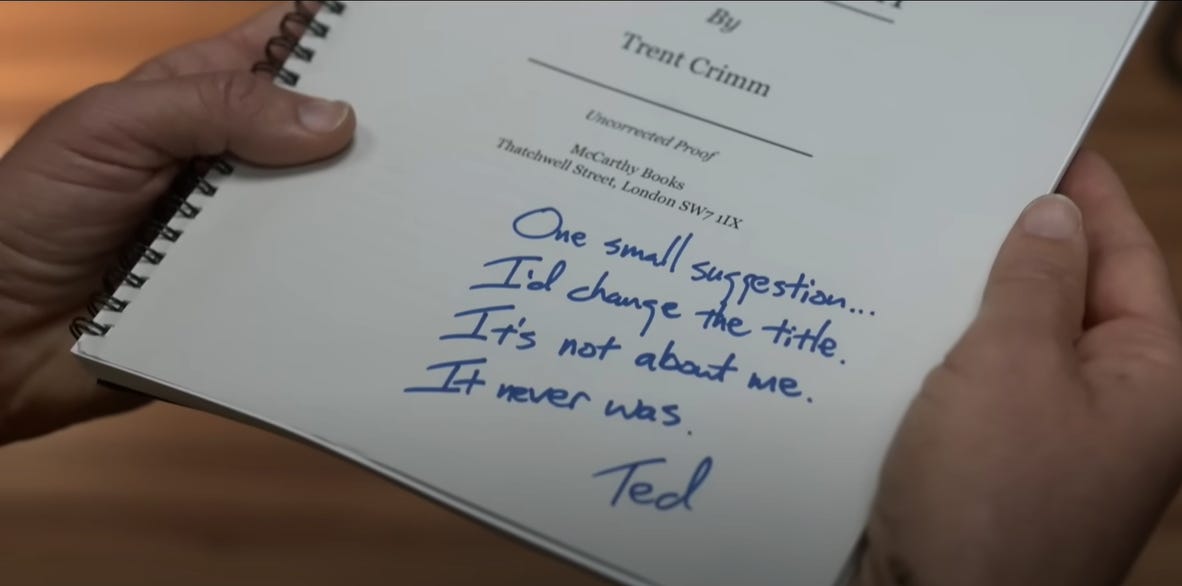 By
Trent Crimm
Uncorrected Proof
McCarthy Books
Thatchwell Street, London SW7 1IX
One small suggestion...
I'd change the title.
It's not about me.
It never was.
Ted